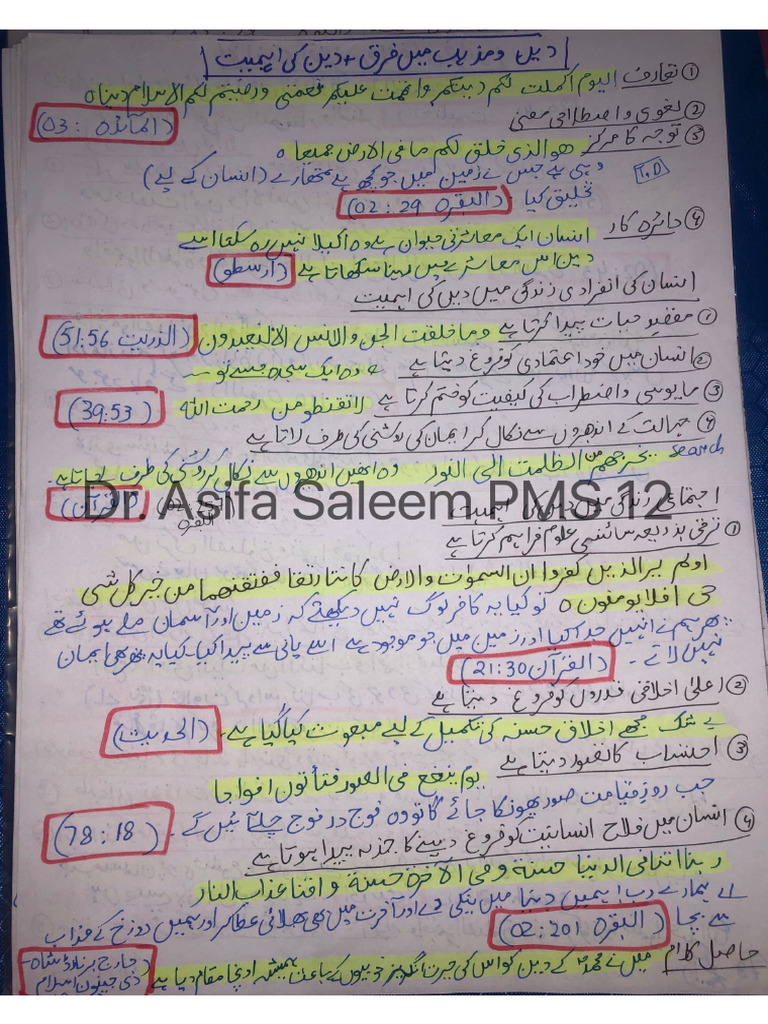 دین و مذہب میں فرق + دین کی اہمیت
① تعارف الیوم اکملت لکم دینکم واتممت علیکم نعمتی ورضیتم لکم الاسلام دینا ٥
② لغوی و اصطلاحی معنی (المائدہ : 03)
③ توجہ کا مرکز ھوالذی خلق لکم مافی الارض جمیعا ٥
وہی ہے جس نے زمین میں جو کچھ ہے تمھارے (انسان کے لیے) T.D
تخلیق کیا۔ (البقرہ 29 : 02)
④ دائرہ کار انسان ایک معاشرتی حیوان ہے وہ اکیلا نہیں رہ سکتا اسے
دین اس معاشرے میں رہنا سکھاتا ہے (ارسطو)
انسان کی انفرادی زندگی میں دین کی اہمیت
① مقصدِ حیات پیدا کرتا ہے وما خلقت الجن والانس الا لیعبدون (الذریت 51:56)
② انسان میں خود اعتمادی کو فروغ دیتا ہے وہ ایک سجدہ جسے تو
③ مایوسی و اضطراب کی کیفیت کو ختم کرتا ہے لاتقنطو من رحمت اللہ (39:53)
④ جہالت کے اندھیروں سے نکال کر ایمان کی روشنی کی طرف لاتا ہے
یخرجھم من الظلمت الی النور وہ انھیں اندھیروں سے نکال کر روشنی کی طرف لے جاتا ہے۔ search
Dr. Asifa Saleem PMS 12
(قرآن) البقرہ
اجتماعی زندگی میں دین کی اہمیت
① ترقی بذریعہ سائنسی علوم فراہم کرتا ہے
اولم یرالذین کفروا ان السموات والارض کانتا رتقا ففتقنھما من جبر کل شی
حی افلا یومنون ٥ تو کیا یہ کافر لوگ نہیں دیکھتے کہ زمین اور آسمان ملے ہوئے تھے
پھر ہم نے انہیں جدا کیا اور زمین میں جو موجود ہے اسے پانی سے پیدا کیا۔ کیا یہ پھر بھی ایمان
نہیں لاتے۔ (القرآن 21:30)
② اعلیٰ اخلاقی قدروں کو فروغ دیتا ہے
بے شک مجھے اخلاق حسنہ کی تکمیل کے لیے مبعوث کیا گیا ہے۔ (الحدیث)
③ احتساب کا تصور دیتا ہے
یوم ینفع فی الصور فتأتون افواجا
جب روزِ قیامت صور پھونکا جائے گا تو وہ فوج در فوج چلے آئیں گے۔ (78 : 18)
④ انسان میں فلاح انسانیت کو فروغ دینے کا جذبہ پیدا ہوتا ہے
ربنا اتنا فی الدنیا حسنة وفی الاخرة حسنة و اقنا عذاب النار
اے ہمارے رب! ہمیں دنیا میں نیکی دے اور آخرت میں بھی بھلائی عطا کر اور ہمیں دوزخ کے عذاب
سے بچا (البقرہ 02:201)
حاصل کلام میں نے محمدؐ کے دین کو اس کی حیرت انگیز خوبیوں کے باعث ہمیشہ اونچا مقام دیا ہے (جارج برناڈ شاہ - دی جینون اسلام)